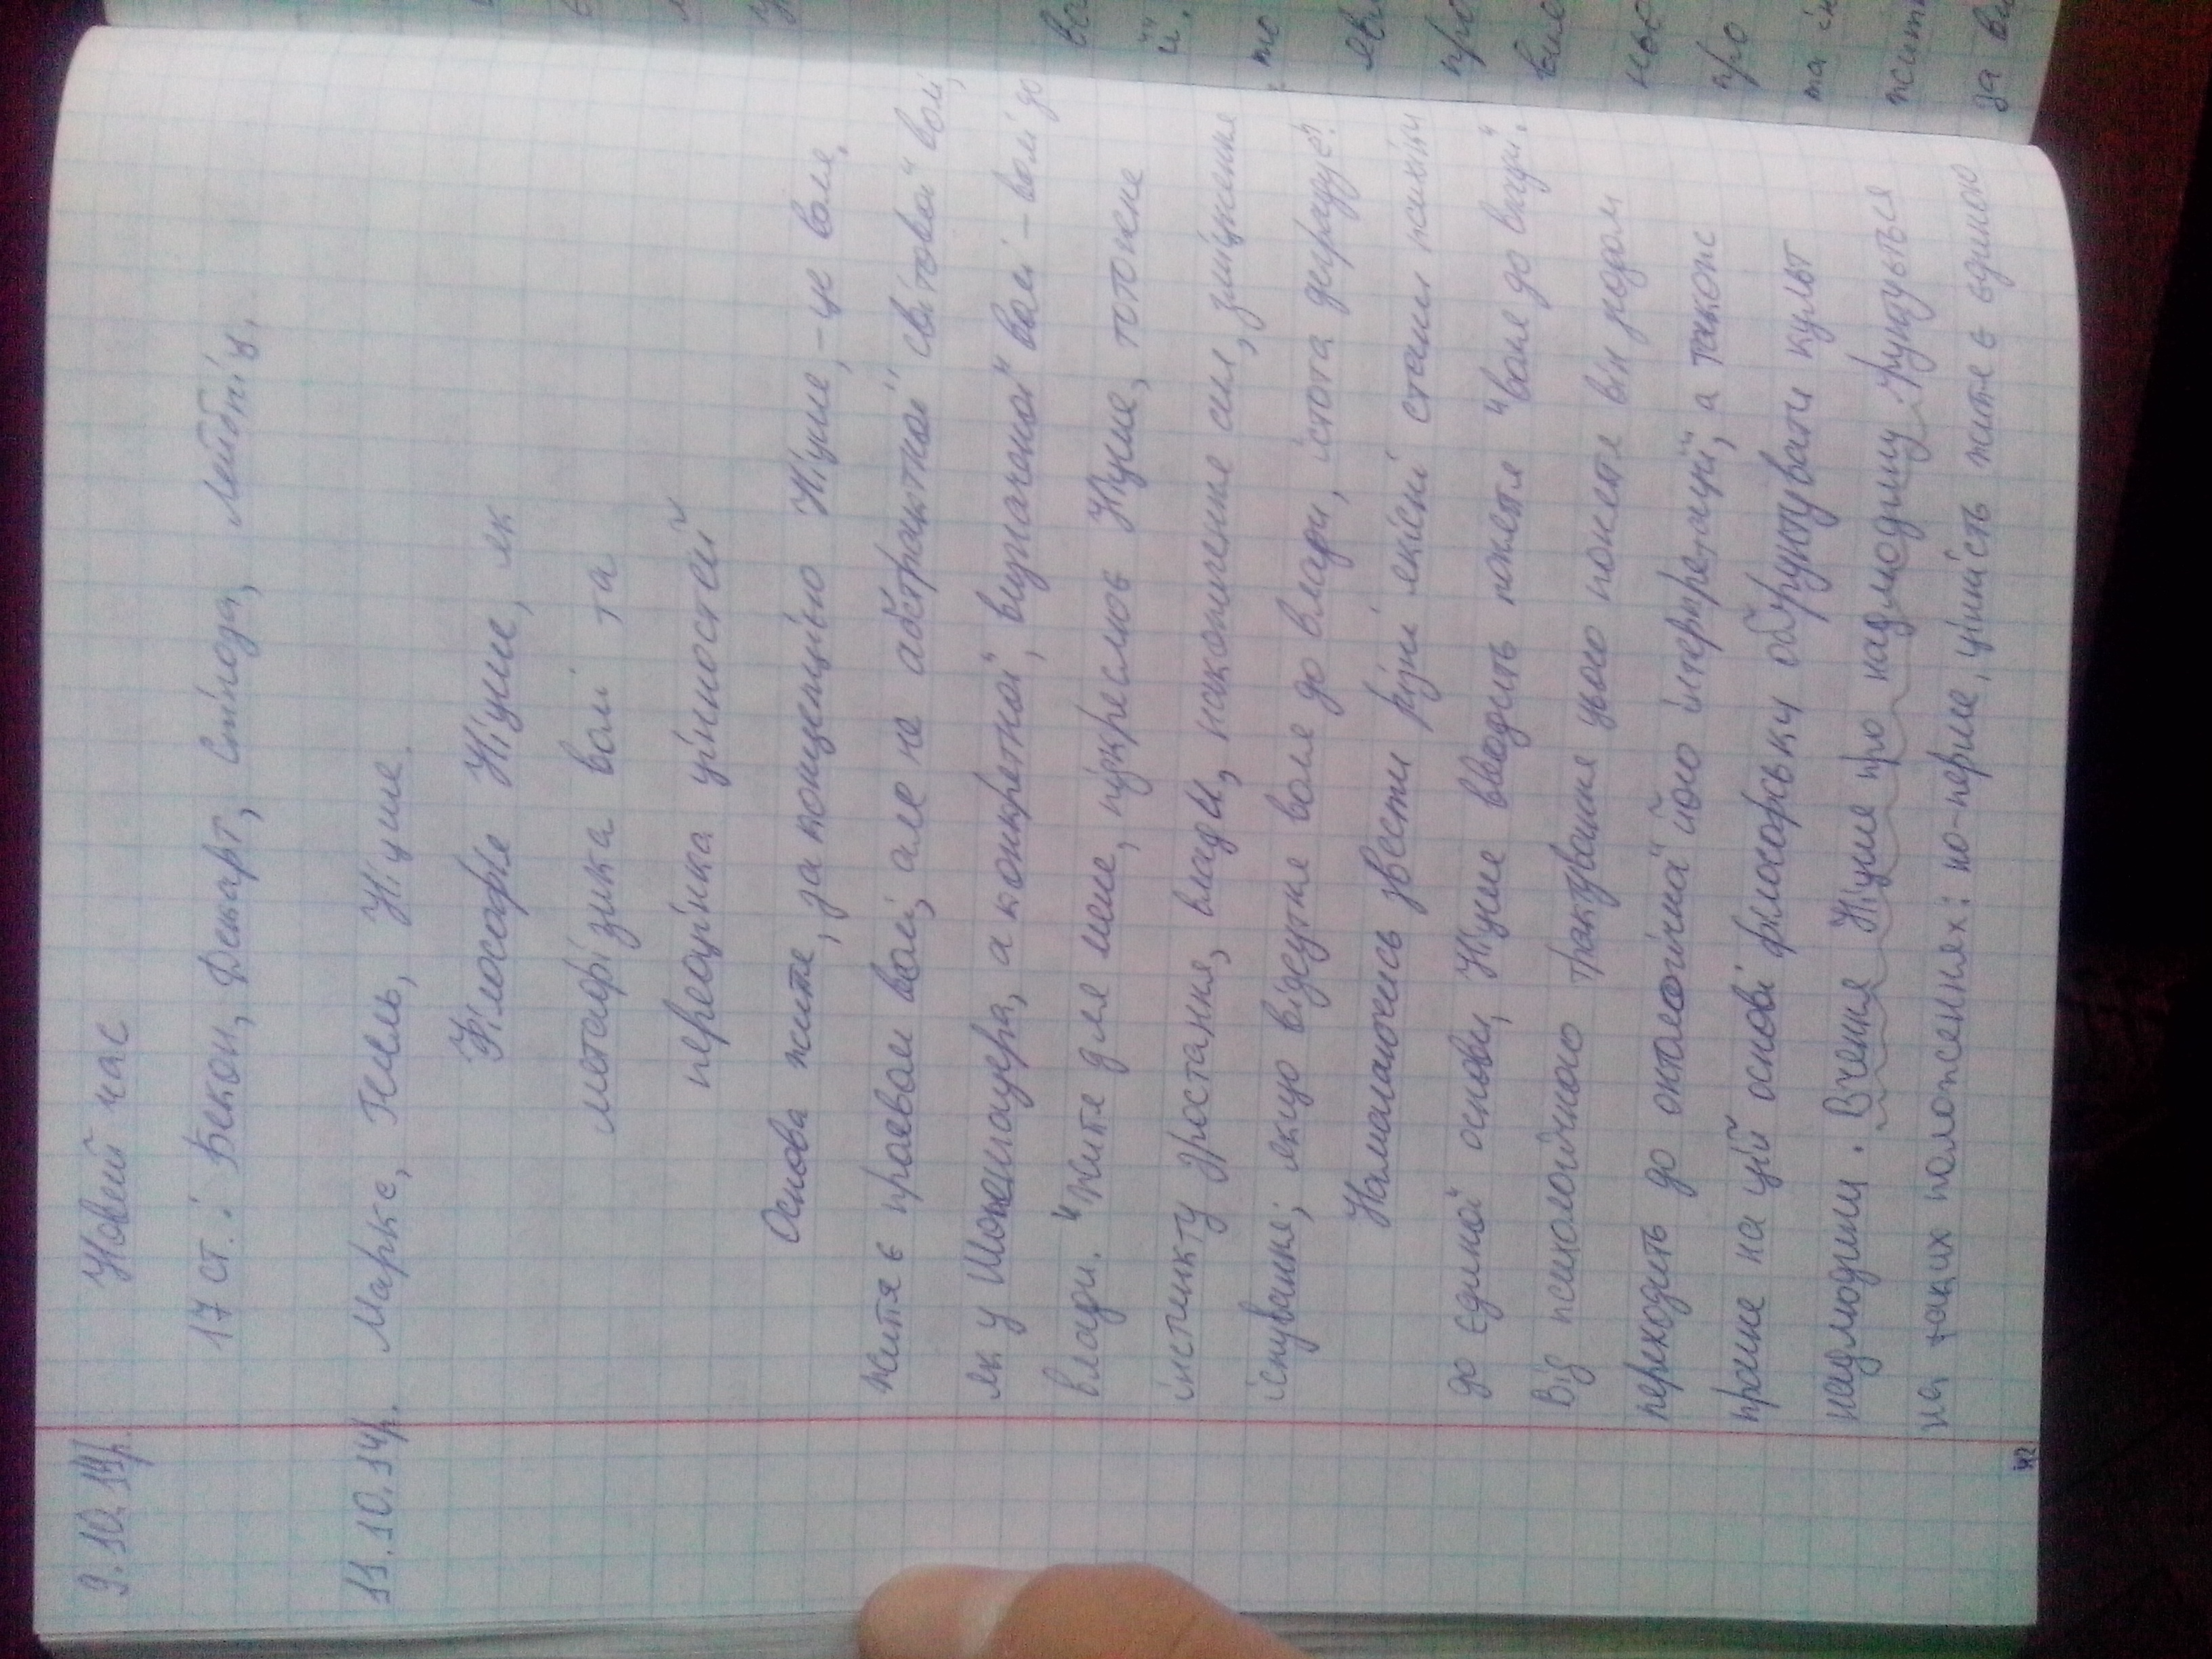 9.10.14р. Новий час
17 ст.: Бекон, Декарт, Спіноза, Лейбніц.
11.10.14р. Маркс, Гегель, Ніцше.
Філософія Ніцше, як
метафізика волі та
переоцінка цінностей
Основа життя, за концепцією Ніцше, – це воля,
життя є проявом волі, але не абстрактної світової волі,
як у Шопенгауера, а конкретної, визначеної волі – волі до
влади. "Життя для мене, підкреслює Ніцше, тотожне
інстинкту зростання, влади, накопичення сил, зміцнення
існування; якщо відсутня воля до влади, істота деградує".
Намагаючись звести різні якісні стани психіки
до єдиної основи, Ніцше вводить поняття "воля до влади".
Від психологічного трактування цього поняття він згодом
переходить до онтологічної його інтерпретації, а також
прагне на цій основі філософськи обґрунтувати культ
надлюдини. Вчення Ніцше про надлюдину ґрунтується
на таких положеннях: по-перше, цінність життя є єдиною
42
й.
про
ньє
про
та ін
за ви